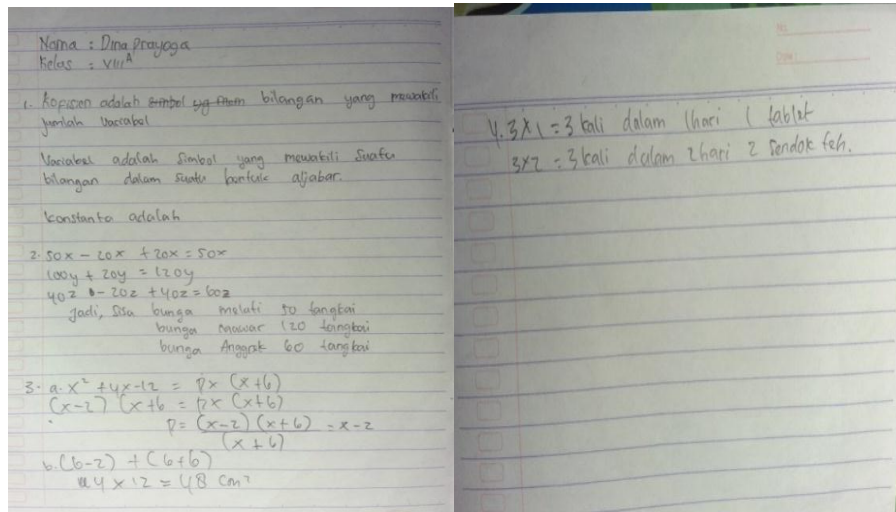 Nama : Dina Prayoga
Kelas : VIII A
1. Kofisien adalah simbol yg bilangan yang mewakili
jumlah Variabel
Variabel adalah simbol yang mewakili suatu
bilangan dalam suatu bentuk aljabar.
Konstanta adalah
2. 50x - 20x + 20x = 50x
100y + 20y = 120y
40z - 20z + 40z = 60z
Jadi, sisa bunga melati 50 tangkai
bunga mawar 120 taingkai
bunga Anggrek 60 tangkai
3. a. x² + 4x - 12 = p x (x+6)
(x-2) (x+6 = p x (x+6)
p = (x-2) (x+6) = x-2
(x+6)
b. (6-2) + (6+6)
4 x 12 = 48 cm²
4. 3x1 = 3 kali dalam 1 hari 1 tablet
3x2 = 3 kali dalam 2 hari 2 sendok teh.